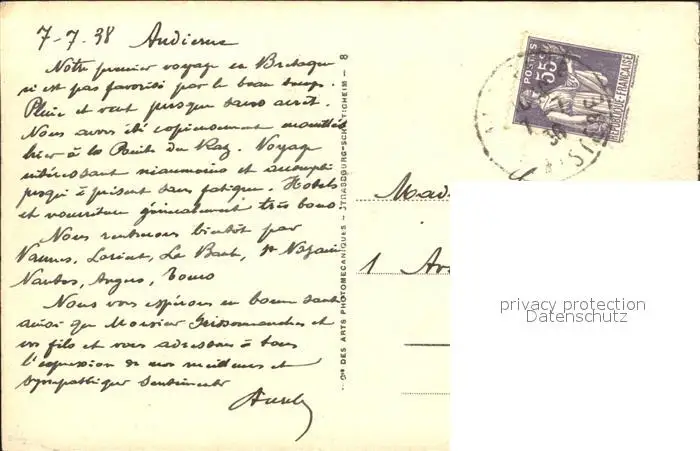 7-7.38 Audierne
Notre premier voyage en Bretagne
n'est pas favorisé par le beau temps.
Pluie et vent presque sans arrêt.
Nous avons été copieusement mouillés
hier à la Pointe du Raz. Voyage
intéressant néanmoins et accompli
jusqu'à présent sans fatigue. Hotels
et nourriture généralement très bons
Nous rentrerons bientôt par
Vannes, Lorient, La Baule, St Nazaire
Nantes, Angers, Tours
Nous vous espérons en bonne santé
ainsi que Monsieur et
vos fils et vous adressons à tous
l'expression de nos meilleurs et
sympathique sentiments
Cie DES ARTS PHOTOMECANIQUES - STRASBOURG-SCHILTIGHEIM - 8
POSTES
55c
REPUBLIQUE-FRANÇAISE
Mad
1 Av
privacy protection
Datenschutz